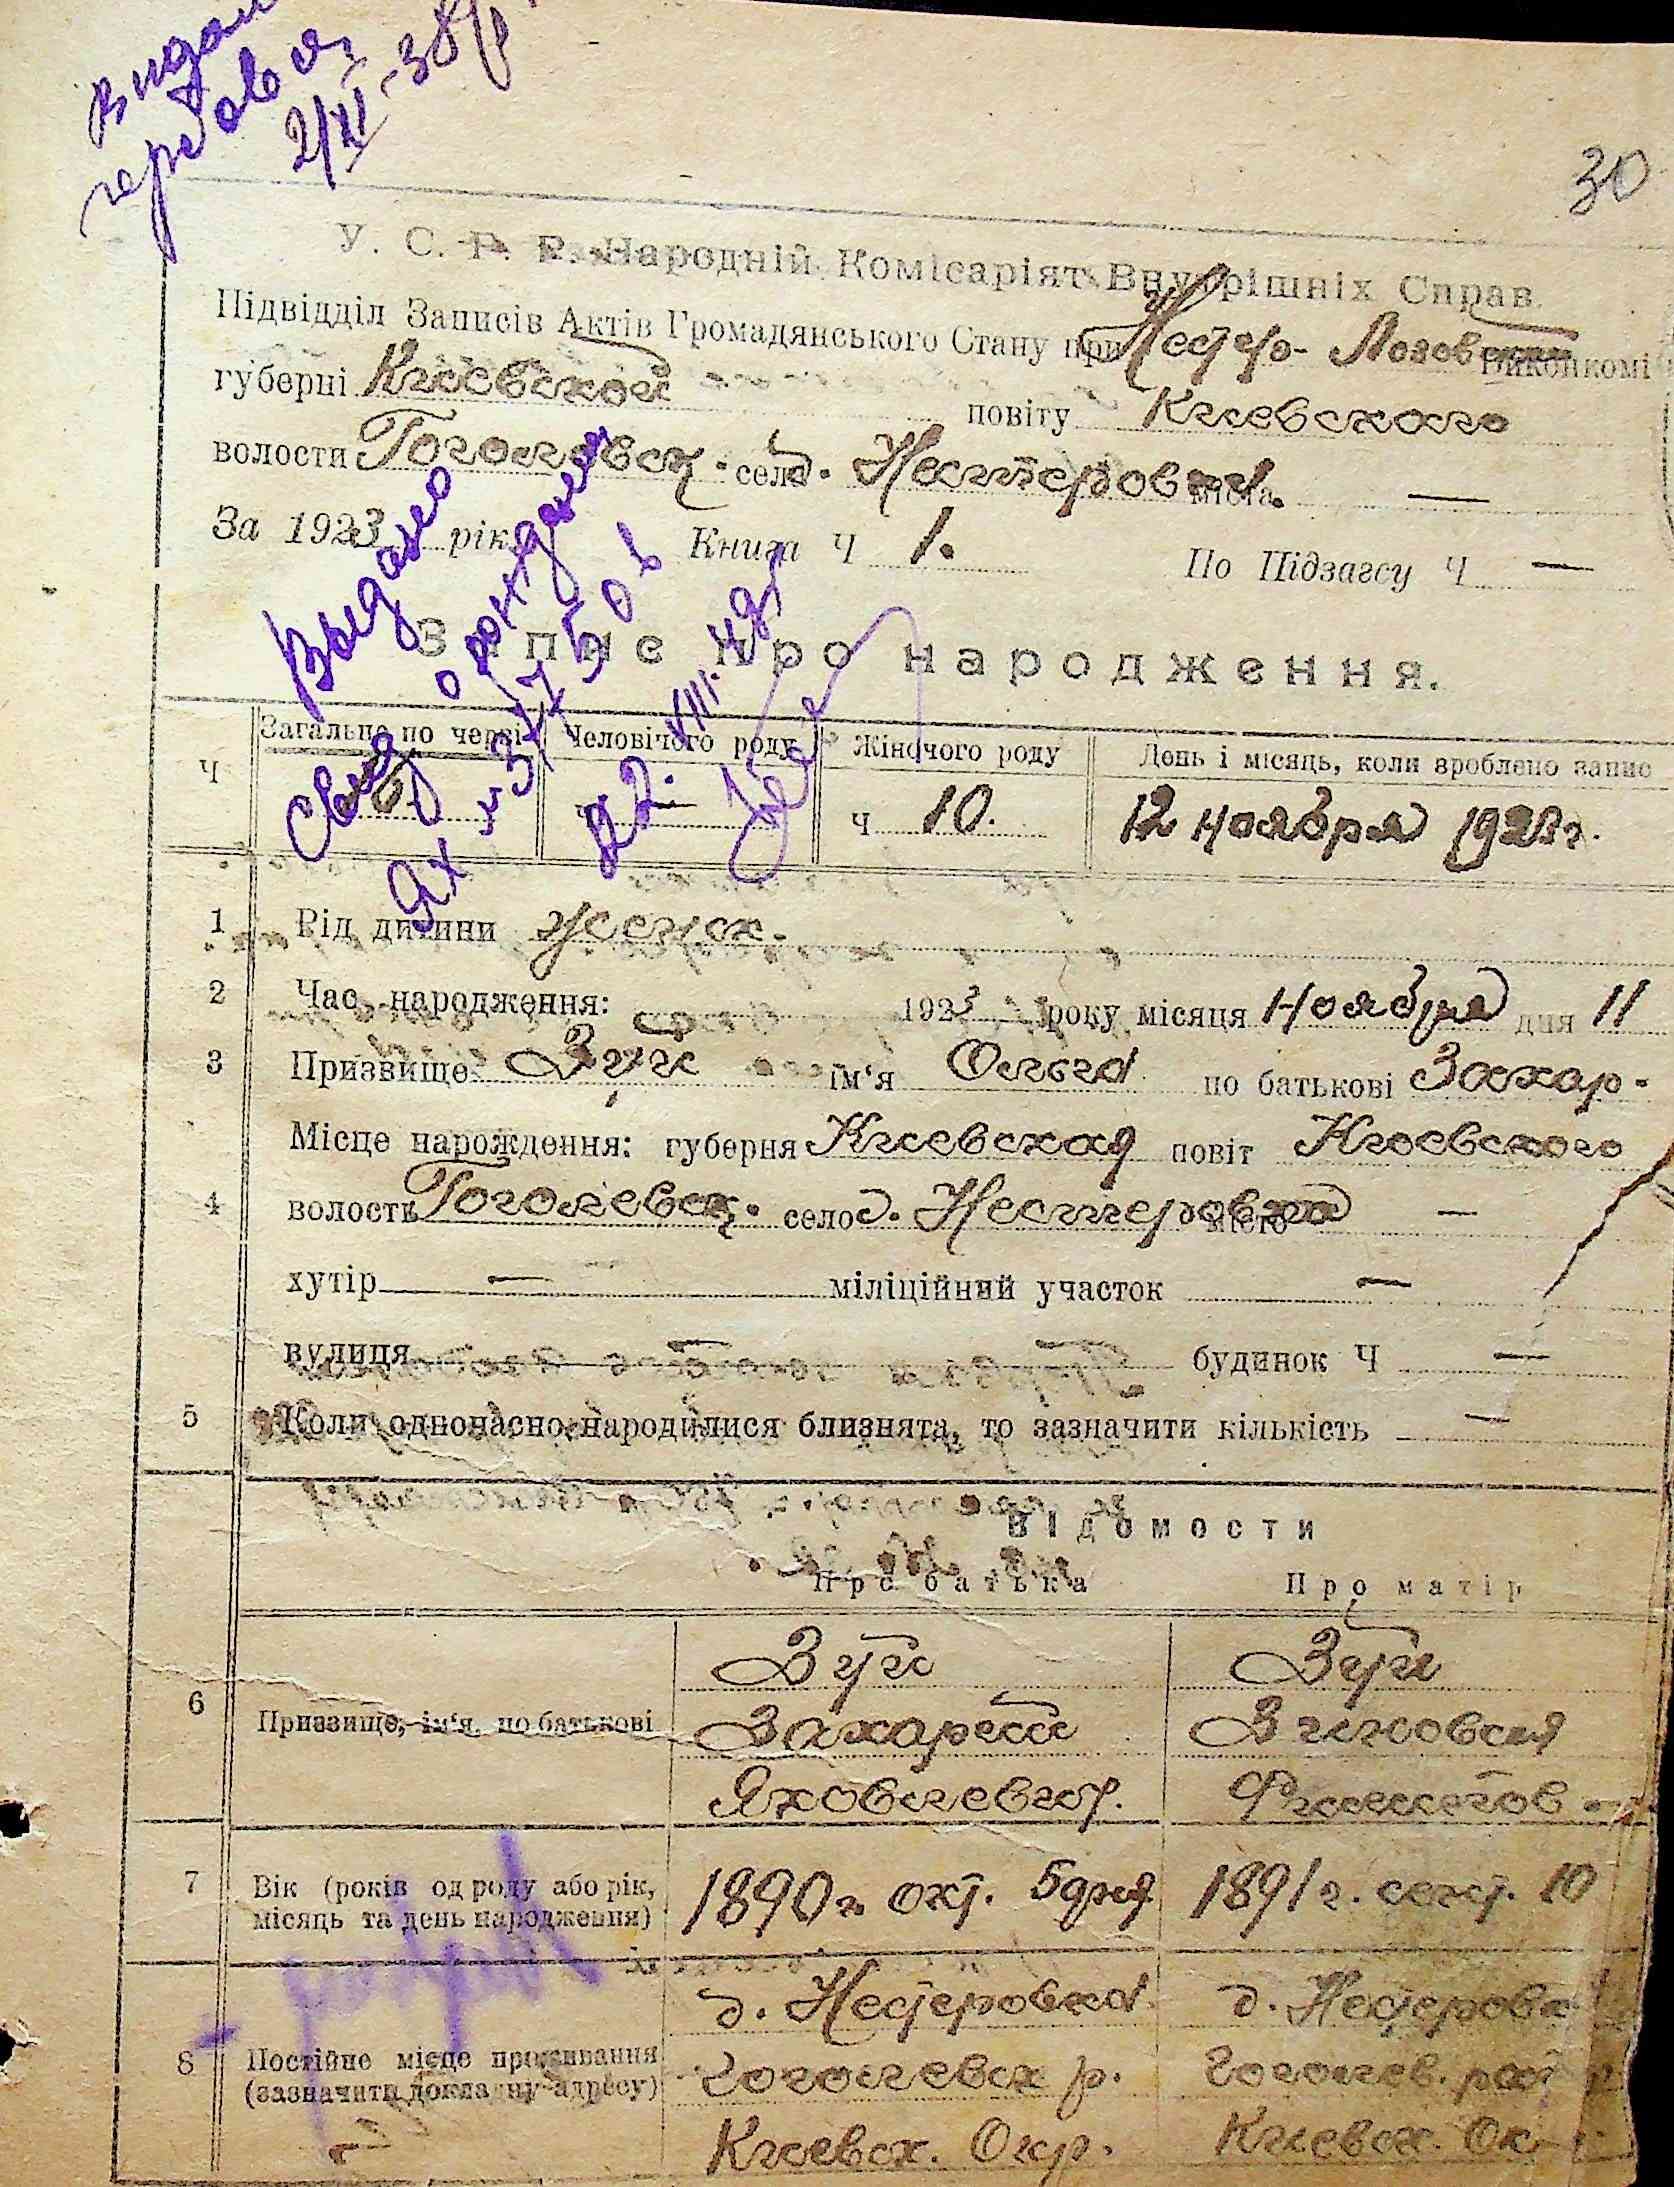 Видана
2/XI-38 р.
30
У. С. Р. Р. Народній Комісаріят Внутрішніх Справ.
Підвідділ Записів Актів Громадянського Стану при Нестеро-Лозов Виконкомі
губерні Киевской повіту Киевского
волости Гоголевск. села д. Нестеровка. міста —
За 1923 рік Книга Ч 1. По Підзагсу Ч —
Выдано
о рождении
Запис про народження.
Ч Загальне по черзі Человічого роду Жіночого роду День і місяць, коли зроблено запис
Ч — Ч 10. 12 ноября 1923 г.
1 Рід дитини женск.
2 Час народження: 1923 року місяця Ноября дня 11
3 Призвище Зуй ім'я Ольга по батькові Захар.
Місце народження: губерня Киевская повіт Киевского
4 волость Гоголевск. село д. Нестеровка місто —
хутір — міліційний участок —
вулиця — будинок Ч —
5 Коли одночасно народилися близнята, то зазначити кількість —
Відомости
Про батька Про матір
Зуй Зуй
6 Призвище, ім'я, по батькові Захарий Зиновия
Яковлевич. Филимонов
7 Вік (років од роду або рік, 1890 г. окт. 5 дня 1891 г. сент. 10
місяць та день народження)
д. Нестеровка д. Нестеровка
8 Постійне місце проживання Гоголевск р. Гоголев. рай
(зазначити докладну адресу)
Киевск. Окр. Киевск. Ок